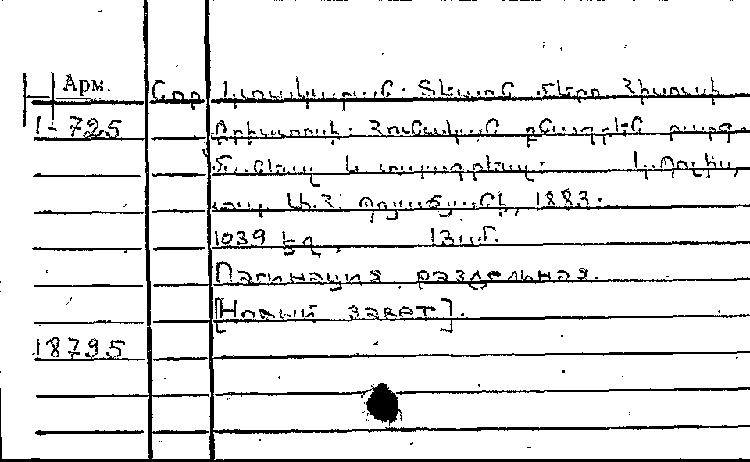 Арм.
Նոր Կտակարան. Տեառն մերոյ Յիսուսի
1-725
Քրիստոսի. Յունական բնագրէն թարգ
մանեալ և տպագրեալ. Կ.Պոլիս,
տպ. Ա.Յ. 1883.
1039 էջ, 13սմ.
Пагинация раздельная.
[Новый завет].
18795